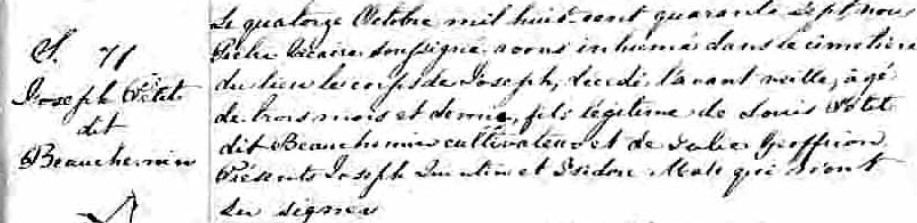 S. 71
Joseph Petit
dit
Beauchemin
Le quatorze Octobre mil huit-cent quarante Sept, nous
Prêtre Vicaire soussigné avons inhumé dans le cimetière
du lieu le corps de Joseph, décédé l'avant veille, âgé
de trois mois et demie, fils légitime de Louis Petit
dit Beauchemin cultivateur et de Julie Geoffrion
Présents Joseph Quintin et Isidore qui n'ont
su signer